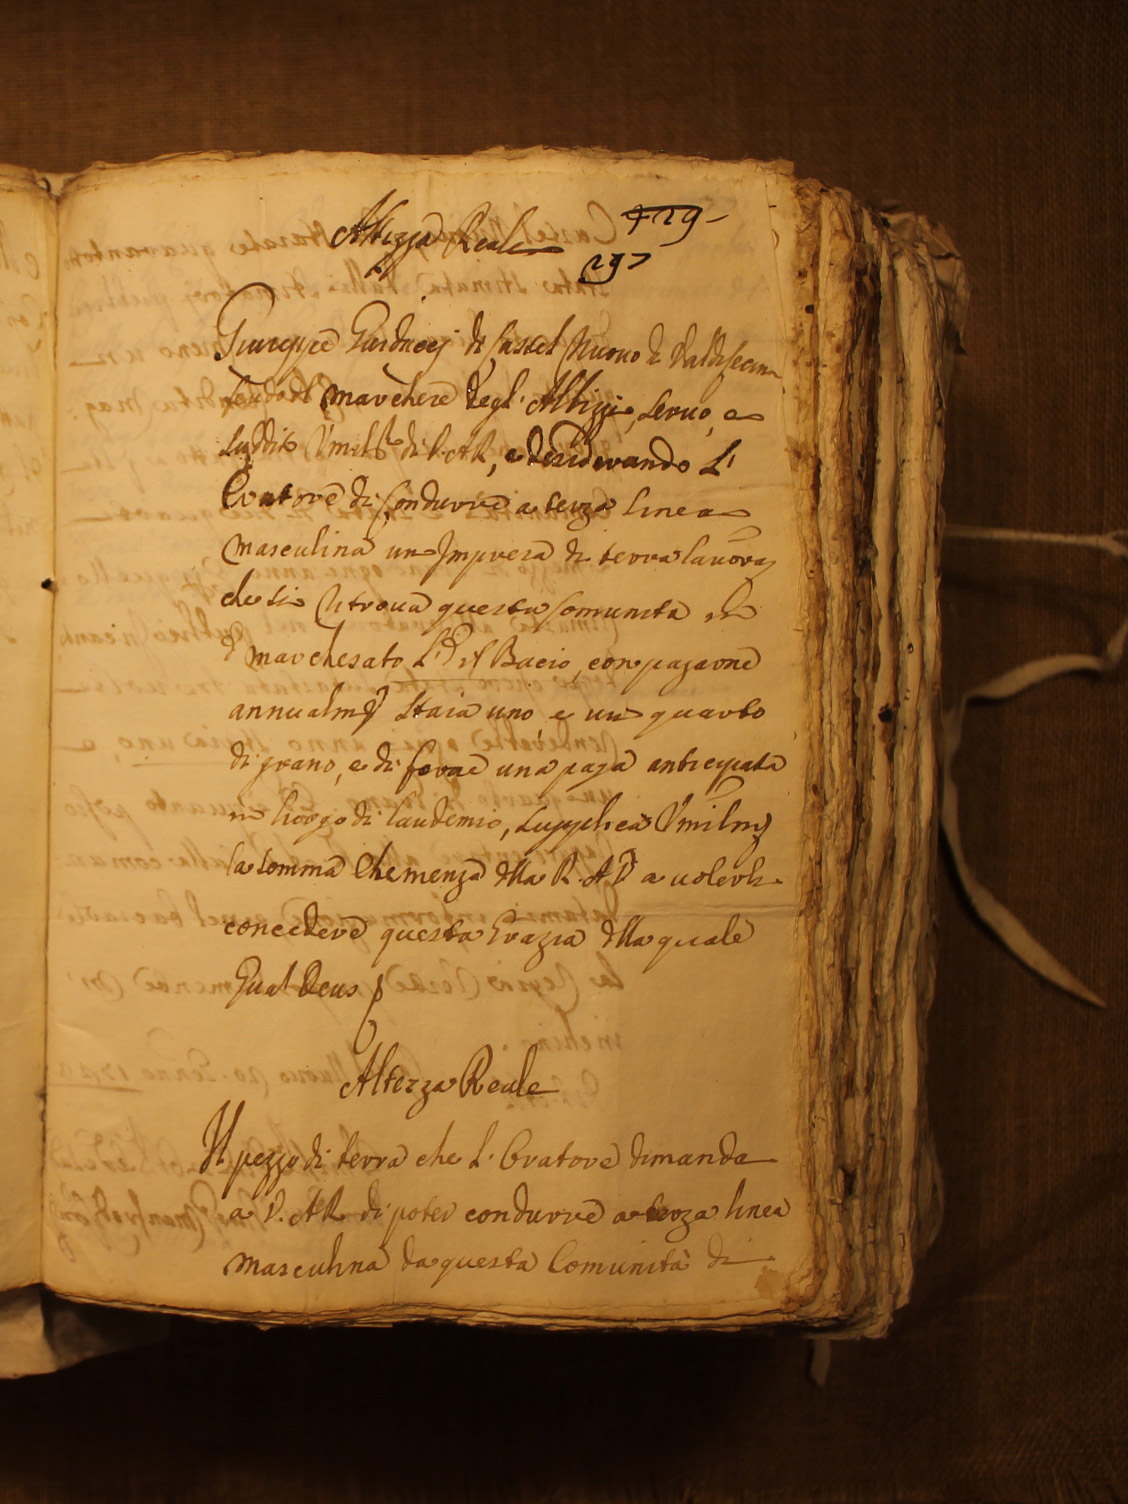 Altezza Reale
429
297
Giuseppe Giarducej di Castel Nuovo di Valdisecin
feudo del Marchese degl' Albizzi, Servo, e
Suddito Umiliss.mo di V. A. R., e desiderando L'
Oratore di Condurre a terza linea
masculina un Impresa di terra lavora
che si ritrova questa Comunità
Marchesato L.D. il Bacio, con pagarne
annualm.te Staia uno e un quarto
di grano, e di fare una paga anticipata
in luogo di laudemio, Supplica Umilm.te
la somma Clemenza della R. A. V. a volerli
concedere questa Grazia della quale
Qual Deus
Altezza Reale
Il pezzo di terra che L' Oratore dimanda
a V. A. R. di poter condurre a terza linea
masculina da questa Comunità di